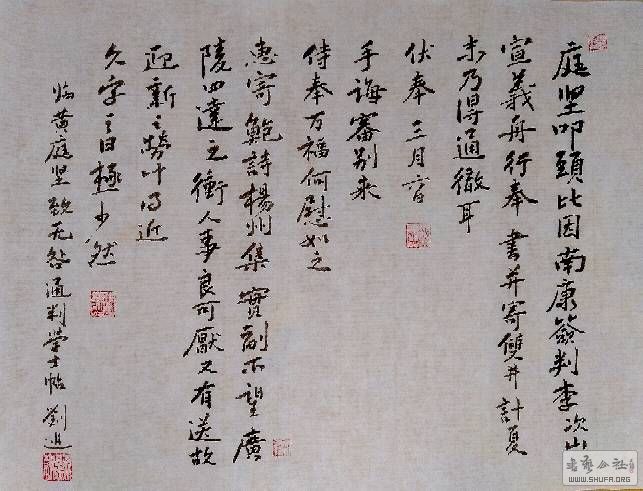 庭坚叩頭比因南康簽判李次山
宣義舟行奉書并寄雙井計夏
末乃得通徹耳
伏奉三月六日
手誨審别来
侍奉万福何慰如之
惠寄鮑詩楊州集實副所望廣
陵四達之衝人事良可厭又有送故
迎新之勞計得近
文字之日極少然
临黄庭坚致无咎通判学士帖 劉
书艺公社
WWW.SHUFA.ORG